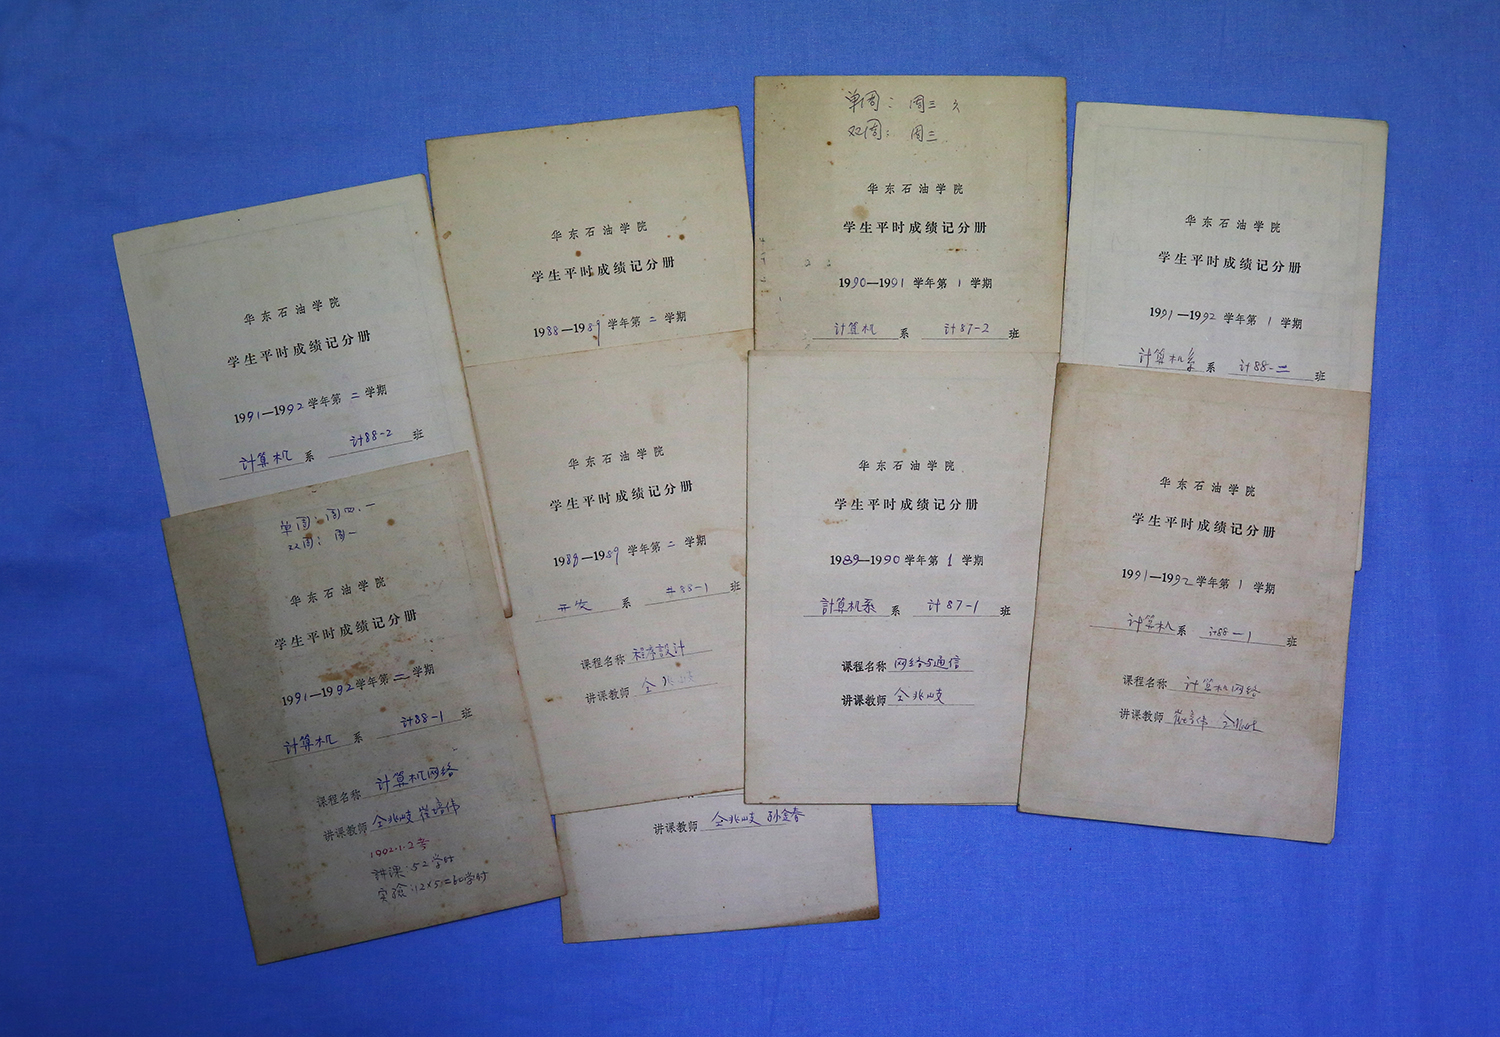 华东石油学院
学生平时成绩记分册
1991—1992学年第二学期
计算机 系 计88-2 班
华东石油学院
学生平时成绩记分册
1988—1989学年第二学期
单周：周三 六
双周：周三
华东石油学院
学生平时成绩记分册
1990—1991学年第1学期
计算机 系 计87-2 班
华东石油学院
学生平时成绩记分册
1991—1992学年第1学期
计算机系 系 计88-二 班
单周：周四.一
双周：周一
华东石油学院
学生平时成绩记分册
1991—1992学年第二学期
计算机 系 计88-1 班
课程名称 计算机网络
讲课教师 仝兆岐 崔培伟
1992.1.2考
讲课：52学时
实验：12×5=60学时
华东石油学院
学生平时成绩记分册
1988—1989学年第二学期
开发 系 井88-1 班
课程名称 程序設计
讲课教师 仝兆岐
讲课教师 仝兆岐 孙金春
华东石油学院
学生平时成绩记分册
1989—1990学年第1学期
計算机系 系 计87-1 班
课程名称 网络与通信
讲课教师 仝兆岐
华东石油学院
学生平时成绩记分册
1991—1992学年第1学期
计算机 系 计88-1 班
课程名称 计算机网络
讲课教师 崔培伟 仝兆岐